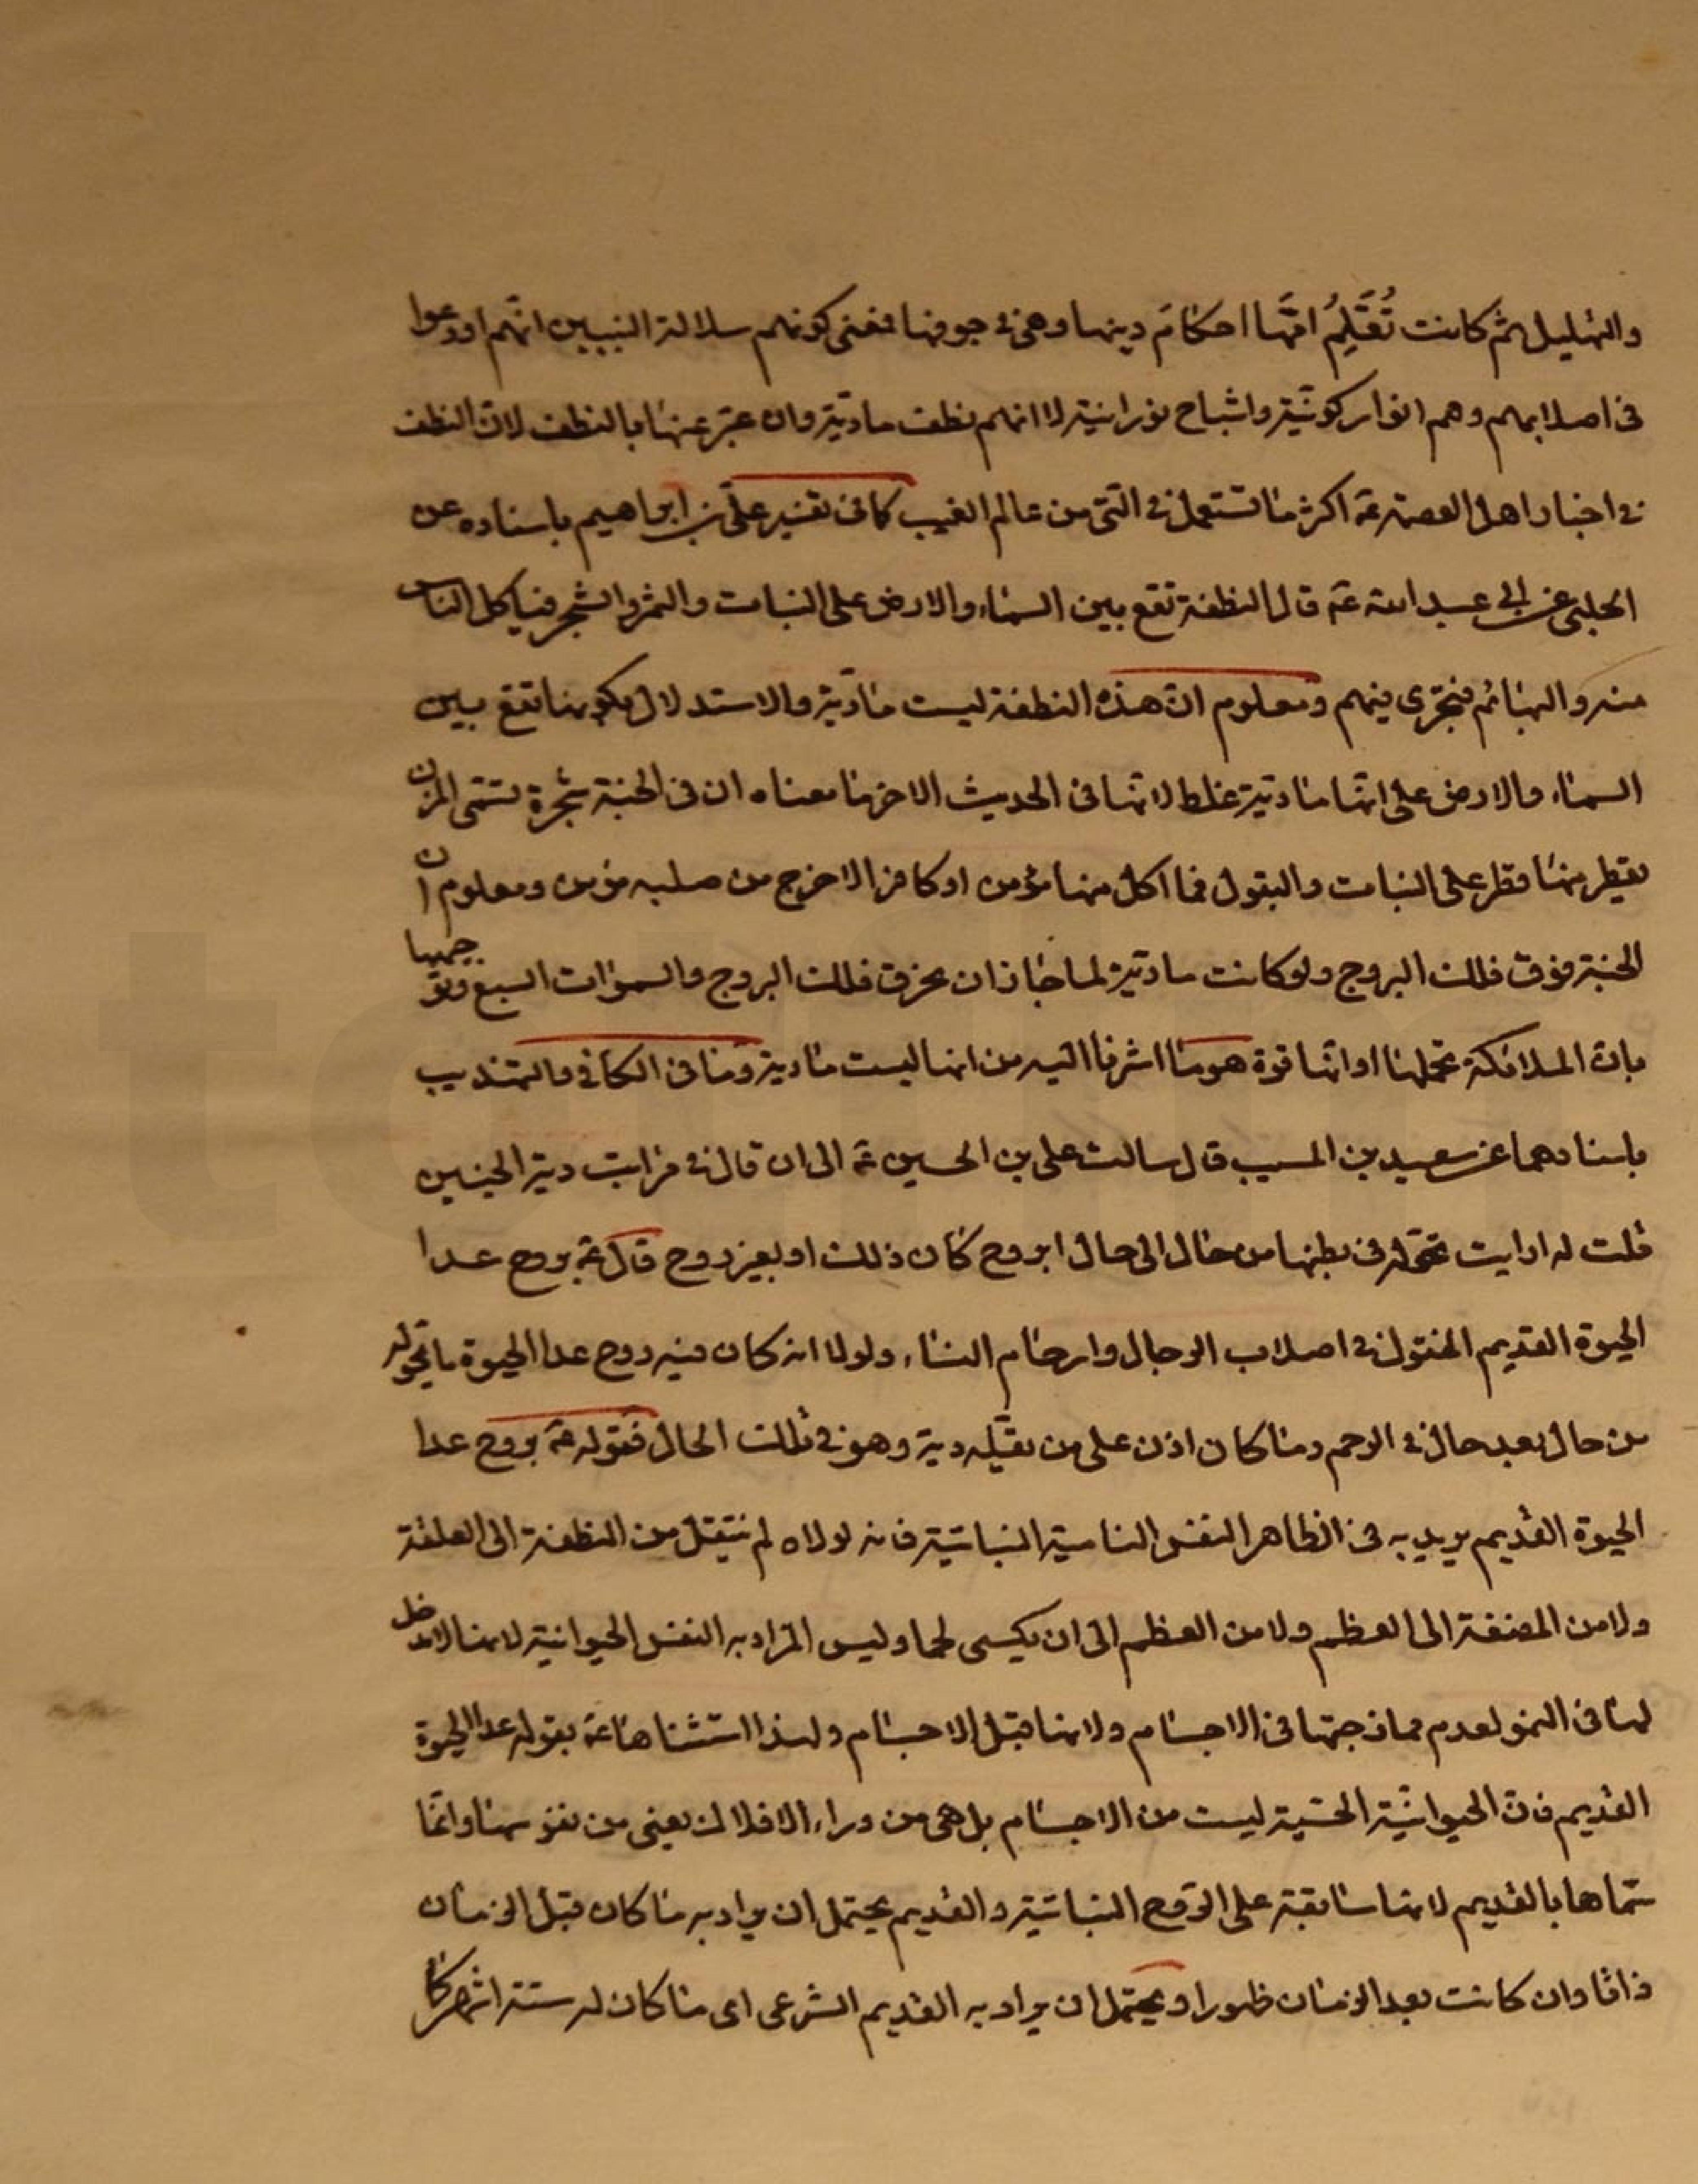 والتهليل ثم كانت تُعَلِّمُ امّها احكامَ دينها وهى فى جوفها فمعنى كونهم سلالة النبيين انهم اودعوا
فى اصلابهم وهم انوار كونيّة واشباح نورانية لا انهم نطف ماديّة وان عبّر عنها بالنطف لانّ النطف
فى اخبار اهل العصمة عم اكثر ما تستعمل فى التى من عالم الغيب كما فى تفسير علىّ بن ابراهيم باسناده عن
الحلبى عن ابى عبد الله عم قال النطفة تقع بين السماء والارض على النبات والثمر والشجر فياكل الناس
منه والبهائم فتجرى فيهم ومعلوم انّ هذه النطفة ليست مادّية والاستدلال بكونها تقع بين
السماء والارض على انّها ماديّة غلط لانّها فى الحديث الاخر ما معناه ان فى الجنة شجرة تسمّى المزن
يقطر منها قطر على النبات والبقول فما اكل منها مؤمن او كافر الا خرج من صلبه مؤمن ومعلوم ان
الجنة فوق فلك البروج ولو كانت ماديّة لما جاز ان يخرق فلك البروج والسموات السبع وتوجيهها
بانّ الملائكة تحملها او انّها قوة هو ما اشرنا اليه من انها ليست مادية وما فى الكافى والتهذيب
باسنادهما عن سعيد بن المسيب قال سالت على بن الحسين عم الى ان قال فى مراتب دية الجنين
قلت له ارايت تحوّله فى بطنها من حال الى حال ابروح كان ذلك او بغير روح قال عم بروح عدا
الحيوة القديم المنقول فى اصلاب الرجال وارحام النساء ولولا انه كان فيه روح عدا الحيوة ما تحوّل
من حال بعد حال فى الرحم وما كان اذن على من يقتله دية وهو فى تلك الحال فقوله عم بروح عدا
الحيوة القديم يريد به فى الظاهر النفس النامية النباتية فانه لولاه لم ينتقل من النطفة الى العلقة
ولا من المضغة الى العظم ولا من العظم الى ان يكسى لحما وليس المراد به النفس الحيوانية لانها لا دخل
لها فى النمو لعدم ممازجتها فى الاجسام ولانها قبل الاجسام ولهذا استثناها عم بقوله عدا الحيوة
القديم فانّ الحيوانيّة الحسّية ليست من الاجسام بل هى من وراء الافلاك يعنى من نفوسها وانّما
سمّاها بالقديم لانها سابقة على الرّوح النباتية والقديم يحتمل ان يراد به ما كان قبل الزمان
ذاتا وان كانت بعد الزمان ظهورا ويحتمل ان يراد به القديم الشرعى اى ما كان له ستة اشهر كما